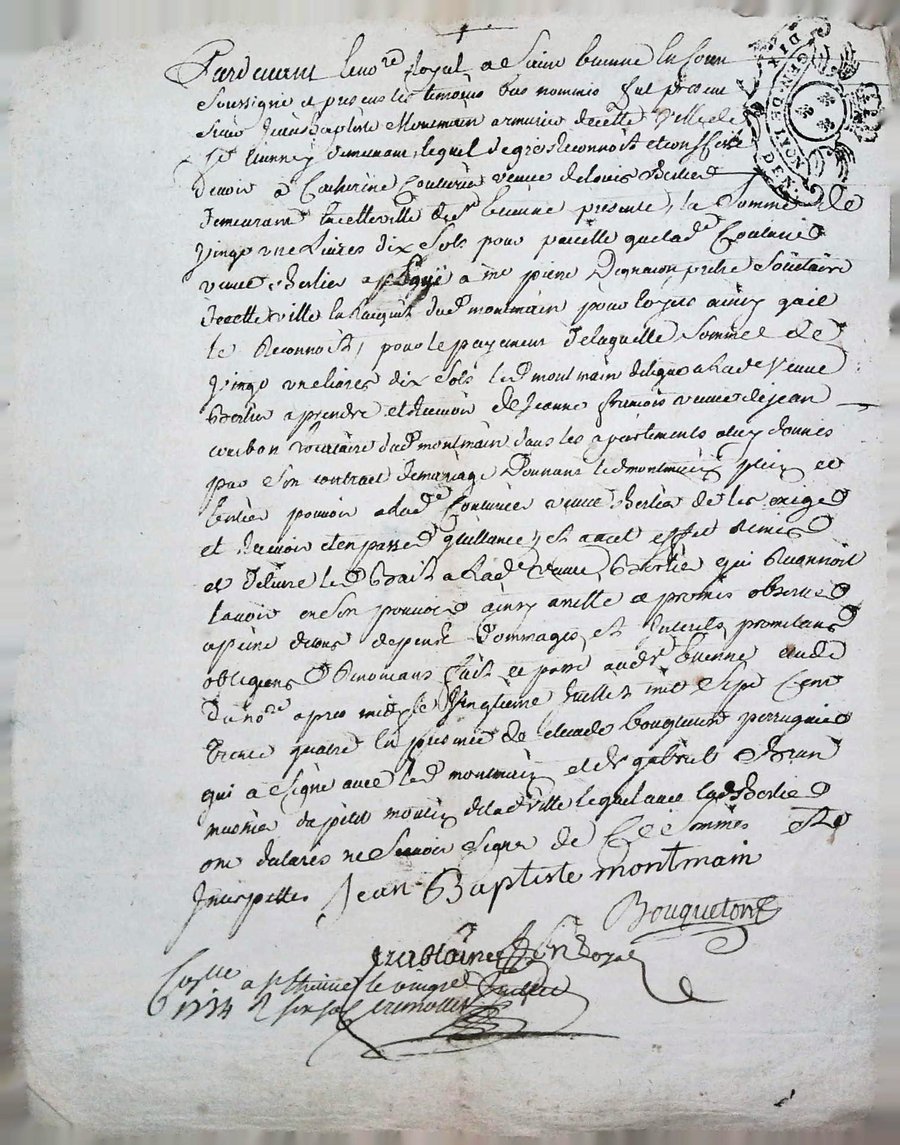 Pardevant le no.re Royal de Saint Etienne en forez
soussigné et presens les temoins bas nommés fut present
Sieur Jean Baptiste Montmain armurier de cette Ville de
St Etienne y demeurant, lequel de gre Reconnoit et confesse
devoir a Catherine Couturier veuve de Louis Berlier
demeurant en cette ville de St Etienne presente, la somme de
vingt une Livres dix Sols pour pareille que lad.e Couturier
veuve Berlier a payé a m.re pierre pretre Societaire
de cette ville en l'acquit dud. montmain pour loyers ainsy qu'il
le Reconnoit, pour le payement de laquelle somme de
vingt une livres dix sols led. montmain delegue a lad.e veuve
Berlier a prendre et recevoir de Jeanne francois veuve de jean
courbon locataire dud. montmain dans les apartements a luy donnés
par son contract de mariage Donnant led. montmain plein et
entier pouvoir a lad.e Couturier veuve Berlier de les exiger
et Recevoir et en passer quittance, et a cet effet Remis
et delivré led. Bail a lad.e veuve Berlier qui Reconnoit
l'avoir en son pouvoir ainsy a esté et promis observer
a peine de tous depens Dommages et Interets, promettans
obligeans Renonçans fait et passé aud. St Etienne etude
du no.re apres midy le vingtieme Juillet mil sept Cent
trente quatre en presence de Claude Bouqueton perruquier
qui a signé avec led. montmain et de Sr gabriel Brun
musnier du petit moulin de lad. ville lequel avec lad. Berlier
ont declarés ne Scavoir Signer de Ce Sommés et
Interpellés Jean Baptiste montmain
Bouqueton
no.re Royal
Con.lle a St Etienne le vingt Juillet
1734 R six sols
GEN. DE LYON
DIX DEN.